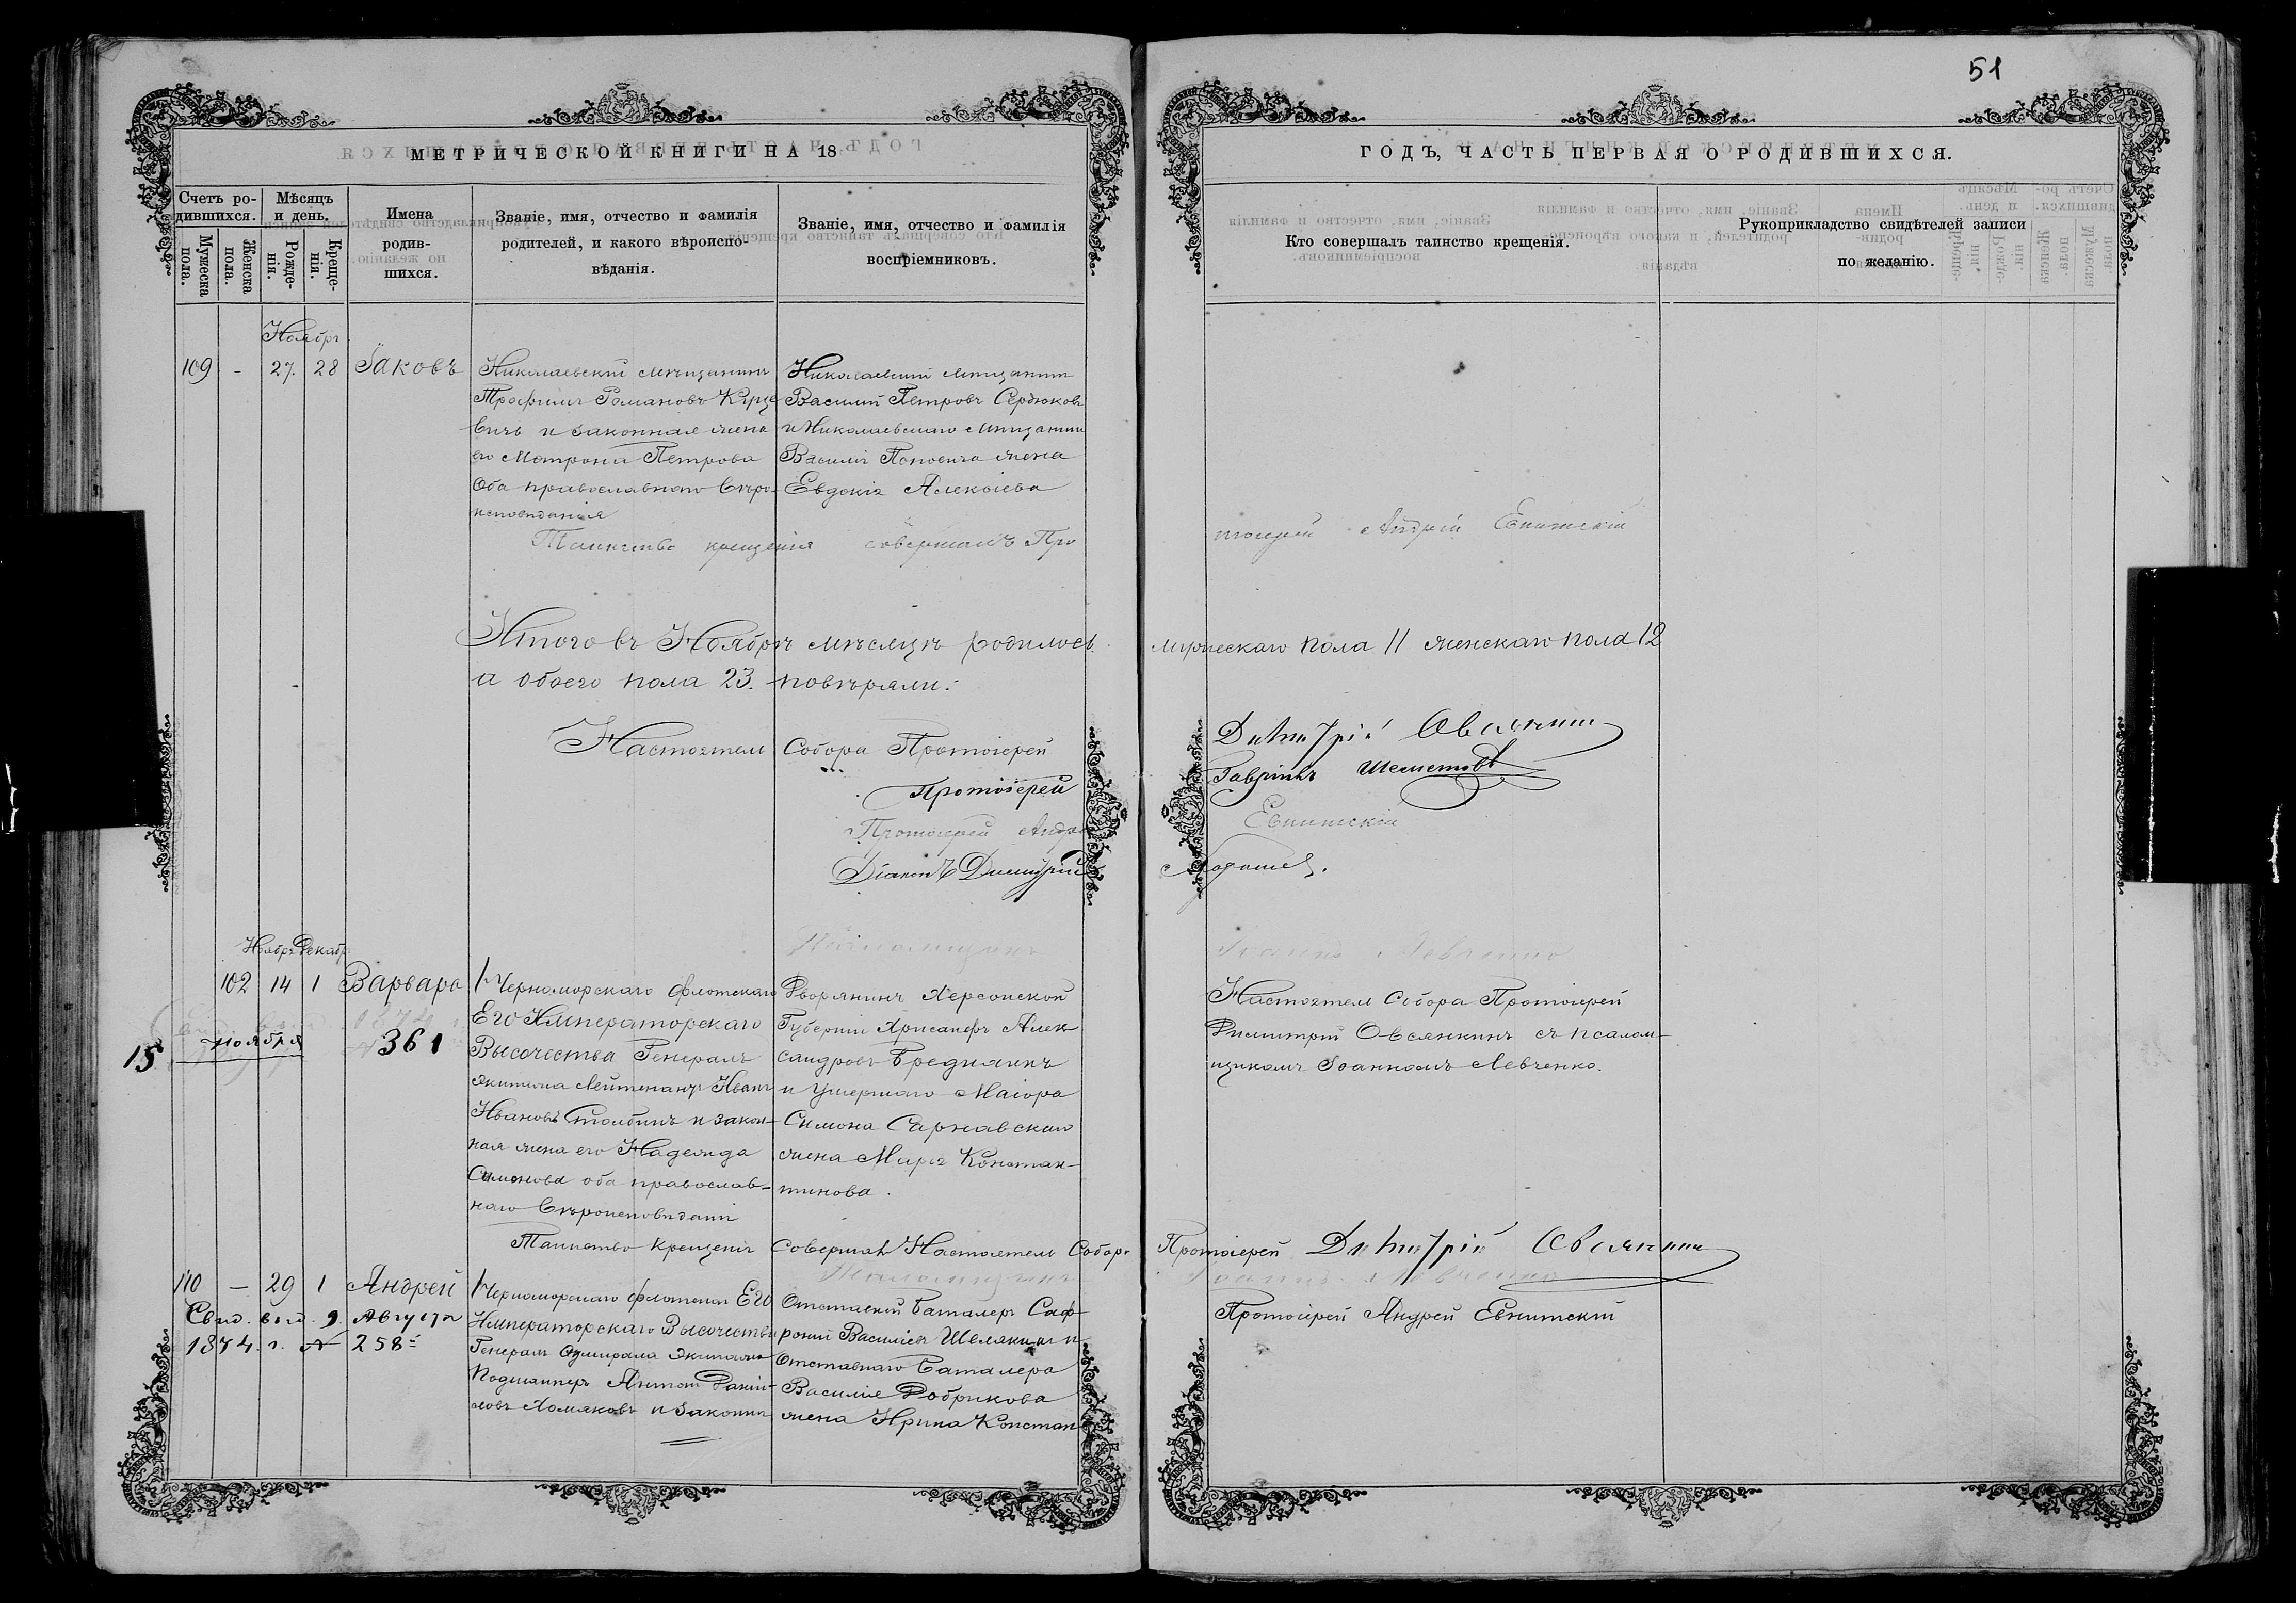 51
МЕТРИЧЕСКОЙ КНИГИ НА 18
ГОДЪ, ЧАСТЬ ПЕРВАЯ О РОДИВШИХСЯ.
Счетъ ро-
дившихся.
Мужеска
пола.
Женска
пола.
Мѣсяцъ
и день.
Рожде-
нія.
Креще-
нія.
Имена
родив-
шихся.
Званіе, имя, отчество и фамилія
родителей, и какого вѣроиспо-
вѣданія.
Званіе, имя, отчество и фамилія
воспріемниковъ.
Кто совершалъ таинство крещенія.
Рукоприкладство свидѣтелей записи
по желанію.
Ноябрь
109 - 27. 28 Іаковъ
Николаевскій мѣщанинъ
Трофимъ Романовъ Курце
вичъ и законная жена
его Матрона Петрова
Оба православнаго вѣро-
исповѣданія
Николаевскій мѣщанинъ
Василій Петровъ Сердюковъ
и Николаевскаго мѣщанина
Василія Поповича жена
Евдокія Алексіева
Таинство крещенія совершалъ Про
тоіерей Андрей
Итого въ Ноябрѣ мѣсяцѣ родилось мужескаго пола 11 женскаго пола 12
а обоего пола 23. повѣряли:
Настоятель Собора Протоіерей
Протоіерей
Протоіерей Андрей
Діаконъ Димитрій
Ноябрь Декабрь
102 14 1 Варвара
15 ноября 361
Черноморскаго флотскаго
Его Императорскаго
Высочества Генералъ
экипажа Лейтенантъ Иванъ
Ивановъ Столбинъ и закон-
ная жена его Надежда
Симонова оба православ-
наго вѣроисповѣданія
Дворянинъ Херсонской
Губерніи Хрисанфъ Алек-
сандровъ Бредихинъ
и умершаго Маіора
Симона Сарнавскаго
жена Марія Констан-
тинова.
Іоаннъ Левченко
Настоятель Собора Протоіерей
Димитрій Овсянкинъ съ псалом-
щикомъ Іоанномъ Левченко.
Таинство Крещенія совершалъ Настоятель Собора Протоіерей Димитрій Овсянкинъ
110 — 29 1 Андрей
Свид. выд. 9. Августа
1874. г. № 258
Черноморскаго флотскаго Его
Императорскаго Высочества
Генералъ Адмирала экипажа
Подшкиперъ Антонъ
Хомяковъ и законная
Отставной Баталеръ Саф-
роній Василіевъ и
Отставнаго Баталера
Василія Добрикова
жена Ирина Констан
Протоіерей Андрей